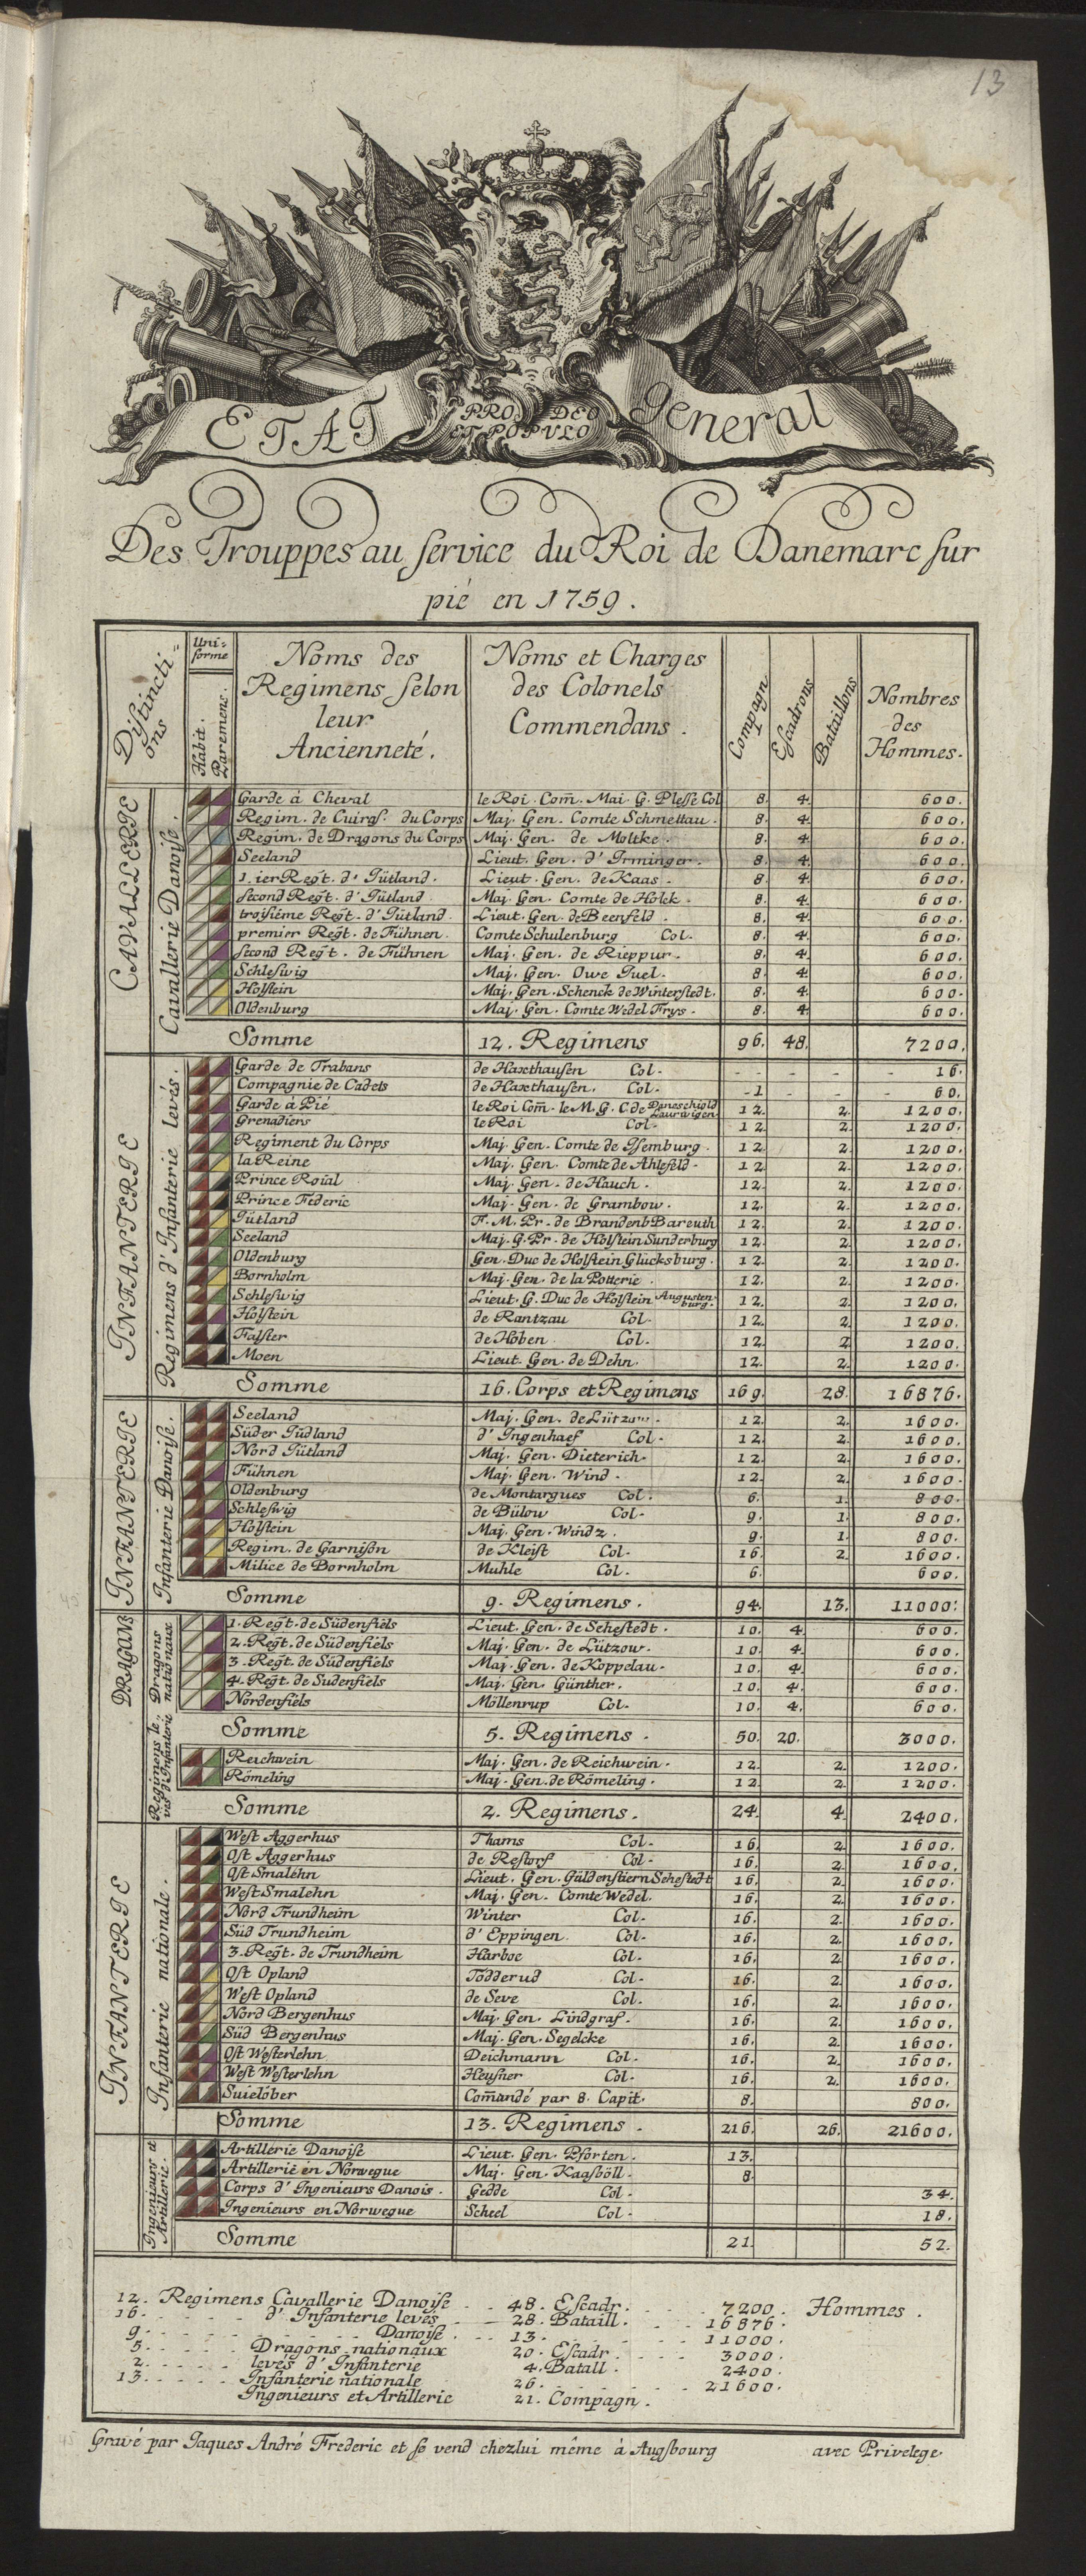 13
ETAT PRO DEO General
ET POPVLO
Des Trouppes au service du Roi de Danemarc sur
pié en 1759.
Distinctions | Uniforme Habit. Paremens. | Noms des Regimens selon leur Ancienneté. | Noms et Charges des Colonels Commendans. | Compagn | Escadrons | Bataillons | Nombres des Hommes.
CAVALLERIE
Cavallerie Danoise.
Garde à Cheval | le Roi. Com̄. Mai. G. Plesse Col | 8. | 4. | 600.
Regim. de Cuiras. du Corps | Maj. Gen. Comte Schmettau. | 8. | 4. | 600.
Regim. de Dragons du Corps | Maj. Gen. de Moltke. | 8. | 4. | 600.
Seeland | Lieut. Gen. d'Irminger. | 8. | 4. | 600.
1.ier Regt. d'Jütland. | Lieut. Gen. de Kaas. | 8. | 4. | 600.
second Regt. d'Jütland | Maj. Gen. Comte de Holck. | 8. | 4. | 600.
troisiéme Regt. d'Jütland. | Lieut. Gen. de Beenfeld. | 8. | 4. | 600.
premier Regt. de Fühnen. | Comte Schulenburg Col. | 8. | 4. | 600.
second Regt. de Fühnen | Maj. Gen. de Rieppur. | 8. | 4. | 600.
Schleswig | Maj. Gen. Owe Juel. | 8. | 4. | 600.
Holstein | Maj. Gen. Schenck de Winterstedt. | 8. | 4. | 600.
Oldenburg | Maj. Gen. Comte Wedel Frys. | 8. | 4. | 600.
Somme | 12. Regimens | 96. | 48. | 7200.
INFANTERIE
Regimens d'Infanterie levés.
Garde de Trabans | de Haxthausen Col. | - | - | - | 16.
Compagnie de Cadets | de Haxthausen. Col. | 1 | - | - | 60.
Garde à Pié | le Roi Com̄. le M. G. C. de Daneschiold Laurwigen. | 12. | 2. | 1200.
Grenadiers | le Roi Col. | 12. | 2. | 1200.
Regiment du Corps | Maj. Gen. Comte de Ysemburg. | 12. | 2. | 1200.
la Reine | Maj. Gen. Comte de Ahlefeld. | 12. | 2. | 1200.
Prince Roial | Maj. Gen. de Hauch. | 12. | 2. | 1200.
Prince Federic | Maj. Gen. de Grambow. | 12. | 2. | 1200.
Jütland | F. M. Pr. de Brandenb Bareuth | 12. | 2. | 1200.
Seeland | Maj. G. Pr. de Holstein Sunderburg | 12. | 2. | 1200.
Oldenburg | Gen. Duc de Holstein Glücksburg. | 12. | 2. | 1200.
Bornholm | Maj. Gen. de la Potterie. | 12. | 2. | 1200.
Schleswig | Lieut. G. Duc de Holstein Augustenburg. | 12. | 2. | 1200.
Holstein | de Rantzau Col. | 12. | 2. | 1200.
Falster | de Hoben Col. | 12. | 2. | 1200.
Moen | Lieut. Gen. de Dehn. | 12. | 2. | 1200.
Somme | 16. Corps et Regimens | 169. | 28. | 16876.
INFANTERIE
Infanterie Danoise.
Seeland | Maj. Gen. de Lützow. | 12. | 2. | 1600.
Süder Jüdland | d'Ingenhaef Col. | 12. | 2. | 1600.
Nord Jütland | Maj. Gen. Dieterich. | 12. | 2. | 1600.
Fühnen | Maj. Gen. Wind. | 12. | 2. | 1600.
Oldenburg | de Montargues Col. | 6. | 1. | 800.
Schleswig | de Bülow Col. | 9. | 1. | 800.
Holstein | Maj. Gen. Windz. | 9. | 1. | 800.
Regim. de Garnison | de Kleist Col. | 16. | 2. | 1600.
Milice de Bornholm | Muhle Col. | 6. | 600.
Somme | 9. Regimens. | 94. | 13. | 11000.
DRAGONS
Dragons nationaux
1. Regt. de Südenfiels | Lieut. Gen. de Sehestedt. | 10. | 4. | 600.
2. Regt. de Südenfiels | Maj. Gen. de Lützow. | 10. | 4. | 600.
3. Regt. de Südenfiels | Maj. Gen. de Koppelau. | 10. | 4. | 600.
4. Regt. de Sudenfiels | Maj. Gen. Günther. | 10. | 4. | 600.
Nordenfiels | Möllenrup Col. | 10. | 4. | 600.
Somme | 5. Regimens. | 50. | 20. | 3000.
Regimens levés d'Infanterie
Reichwein | Maj. Gen. de Reichwein. | 12. | 2. | 1200.
Römeling | Maj. Gen. de Römeling. | 12. | 2. | 1200.
Somme | 2. Regimens. | 24. | 4. | 2400.
INFANTERIE
Infanterie nationale.
West Aggerhus | Thams Col. | 16. | 2. | 1600.
Ost Aggerhus | de Restorf Col. | 16. | 2. | 1600.
Ost Smalehn | Lieut. Gen. Güldenstiern Sehestedt | 16. | 2. | 1600.
West Smalehn | Maj. Gen. Comte Wedel. | 16. | 2. | 1600.
Nord Trundheim | Winter Col. | 16. | 2. | 1600.
Süd Trundheim | d'Eppingen. Col. | 16. | 2. | 1600.
3. Regt. de Trundheim | Harboe Col. | 16. | 2. | 1600.
Ost Opland | Tödderud Col. | 16. | 2. | 1600.
West Opland | de Seve Col. | 16. | 2. | 1600.
Nord Bergenhus | Maj. Gen. Lindgraf. | 16. | 2. | 1600.
Süd Bergenhus | Maj. Gen. Segelcke | 16. | 2. | 1600.
Ost Westerlehn | Deichmann Col. | 16. | 2. | 1600.
West Westerlehn | Heusner Col. | 16. | 2. | 1600.
Suielöber | Com̄andé par 8. Capit. | 8. | 800.
Somme | 13. Regimens. | 216. | 26. | 21600.
Ingenieurs et Artillerie.
Artillerie Danoise | Lieut. Gen. Pforten. | 13.
Artillerie en Norwegue | Maj. Gen. Kaasböll. | 8.
Corps d'Ingenieurs Danois. | Gedde Col. | 34.
Ingenieurs en Norwegue | Scheel Col. | 18.
Somme | 21. | 52.
12. Regimens Cavallerie Danoise . . 48. Escadr. . . . 7200. Hommes.
16. . . . . d'Infanterie levés . . 28. Bataill. . . . 16876.
9. . . . . Danoise . . . 13. . . . 11000.
5. . . . . Dragons nationaux 20. Escadr. . . . 3000.
2. . . . . levés d'Infanterie 4. Batall. 2400.
13. . . . . Infanterie nationale 26. . . . 21600.
Ingenieurs et Artillerie 21. Compagn.
Gravé par Jaques André Frederic et se vend chez lui même à Augsbourg avec Privelege